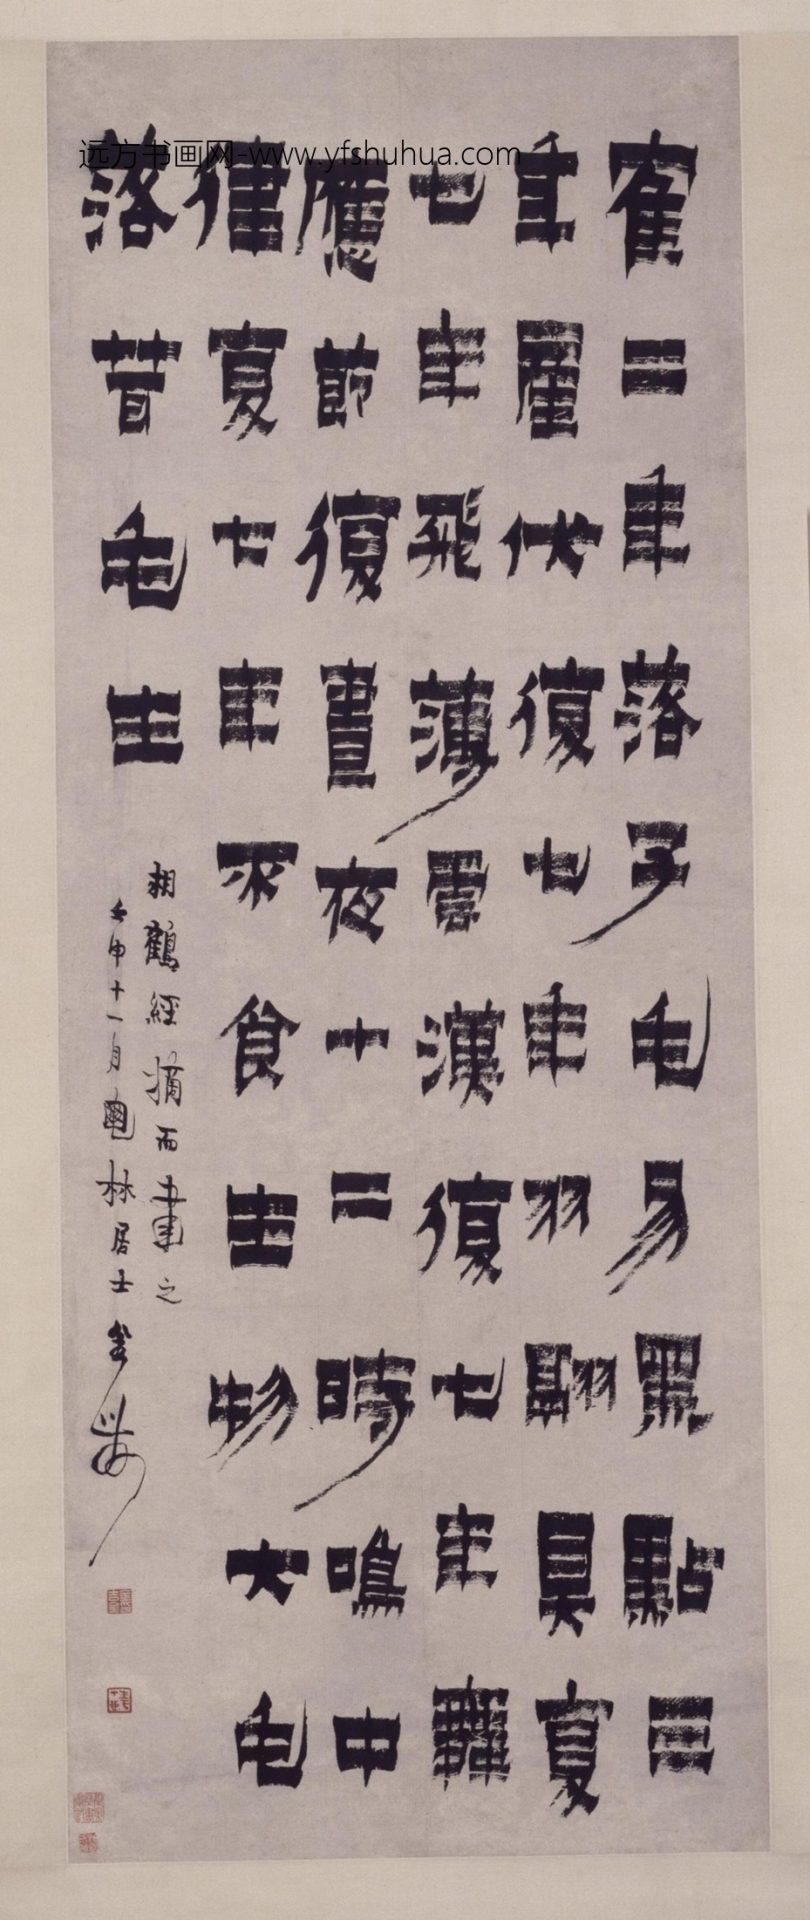 远方书画网-www.yfshuhua.com
寉二年落子毛易黑點三
年產伏復七年羽翮具夏
七年飛薄雲漢復七年舞
應節復晝夜十二時鳴中
律夏七年不食生物大毛
落茸毛生
相鶴經摘而書之
壬申十一月林居士金農